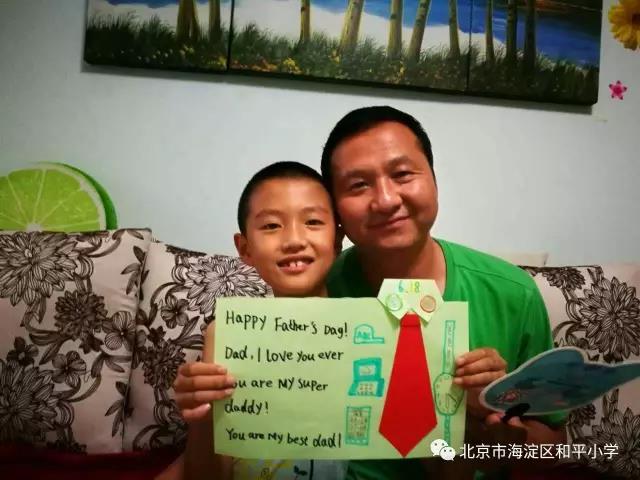 6.18
HAPPY Father's Day!
Dad, I love you ever
you are MY super
daddy!
You are My best dad!
ABC
北京市海淀区和平小学